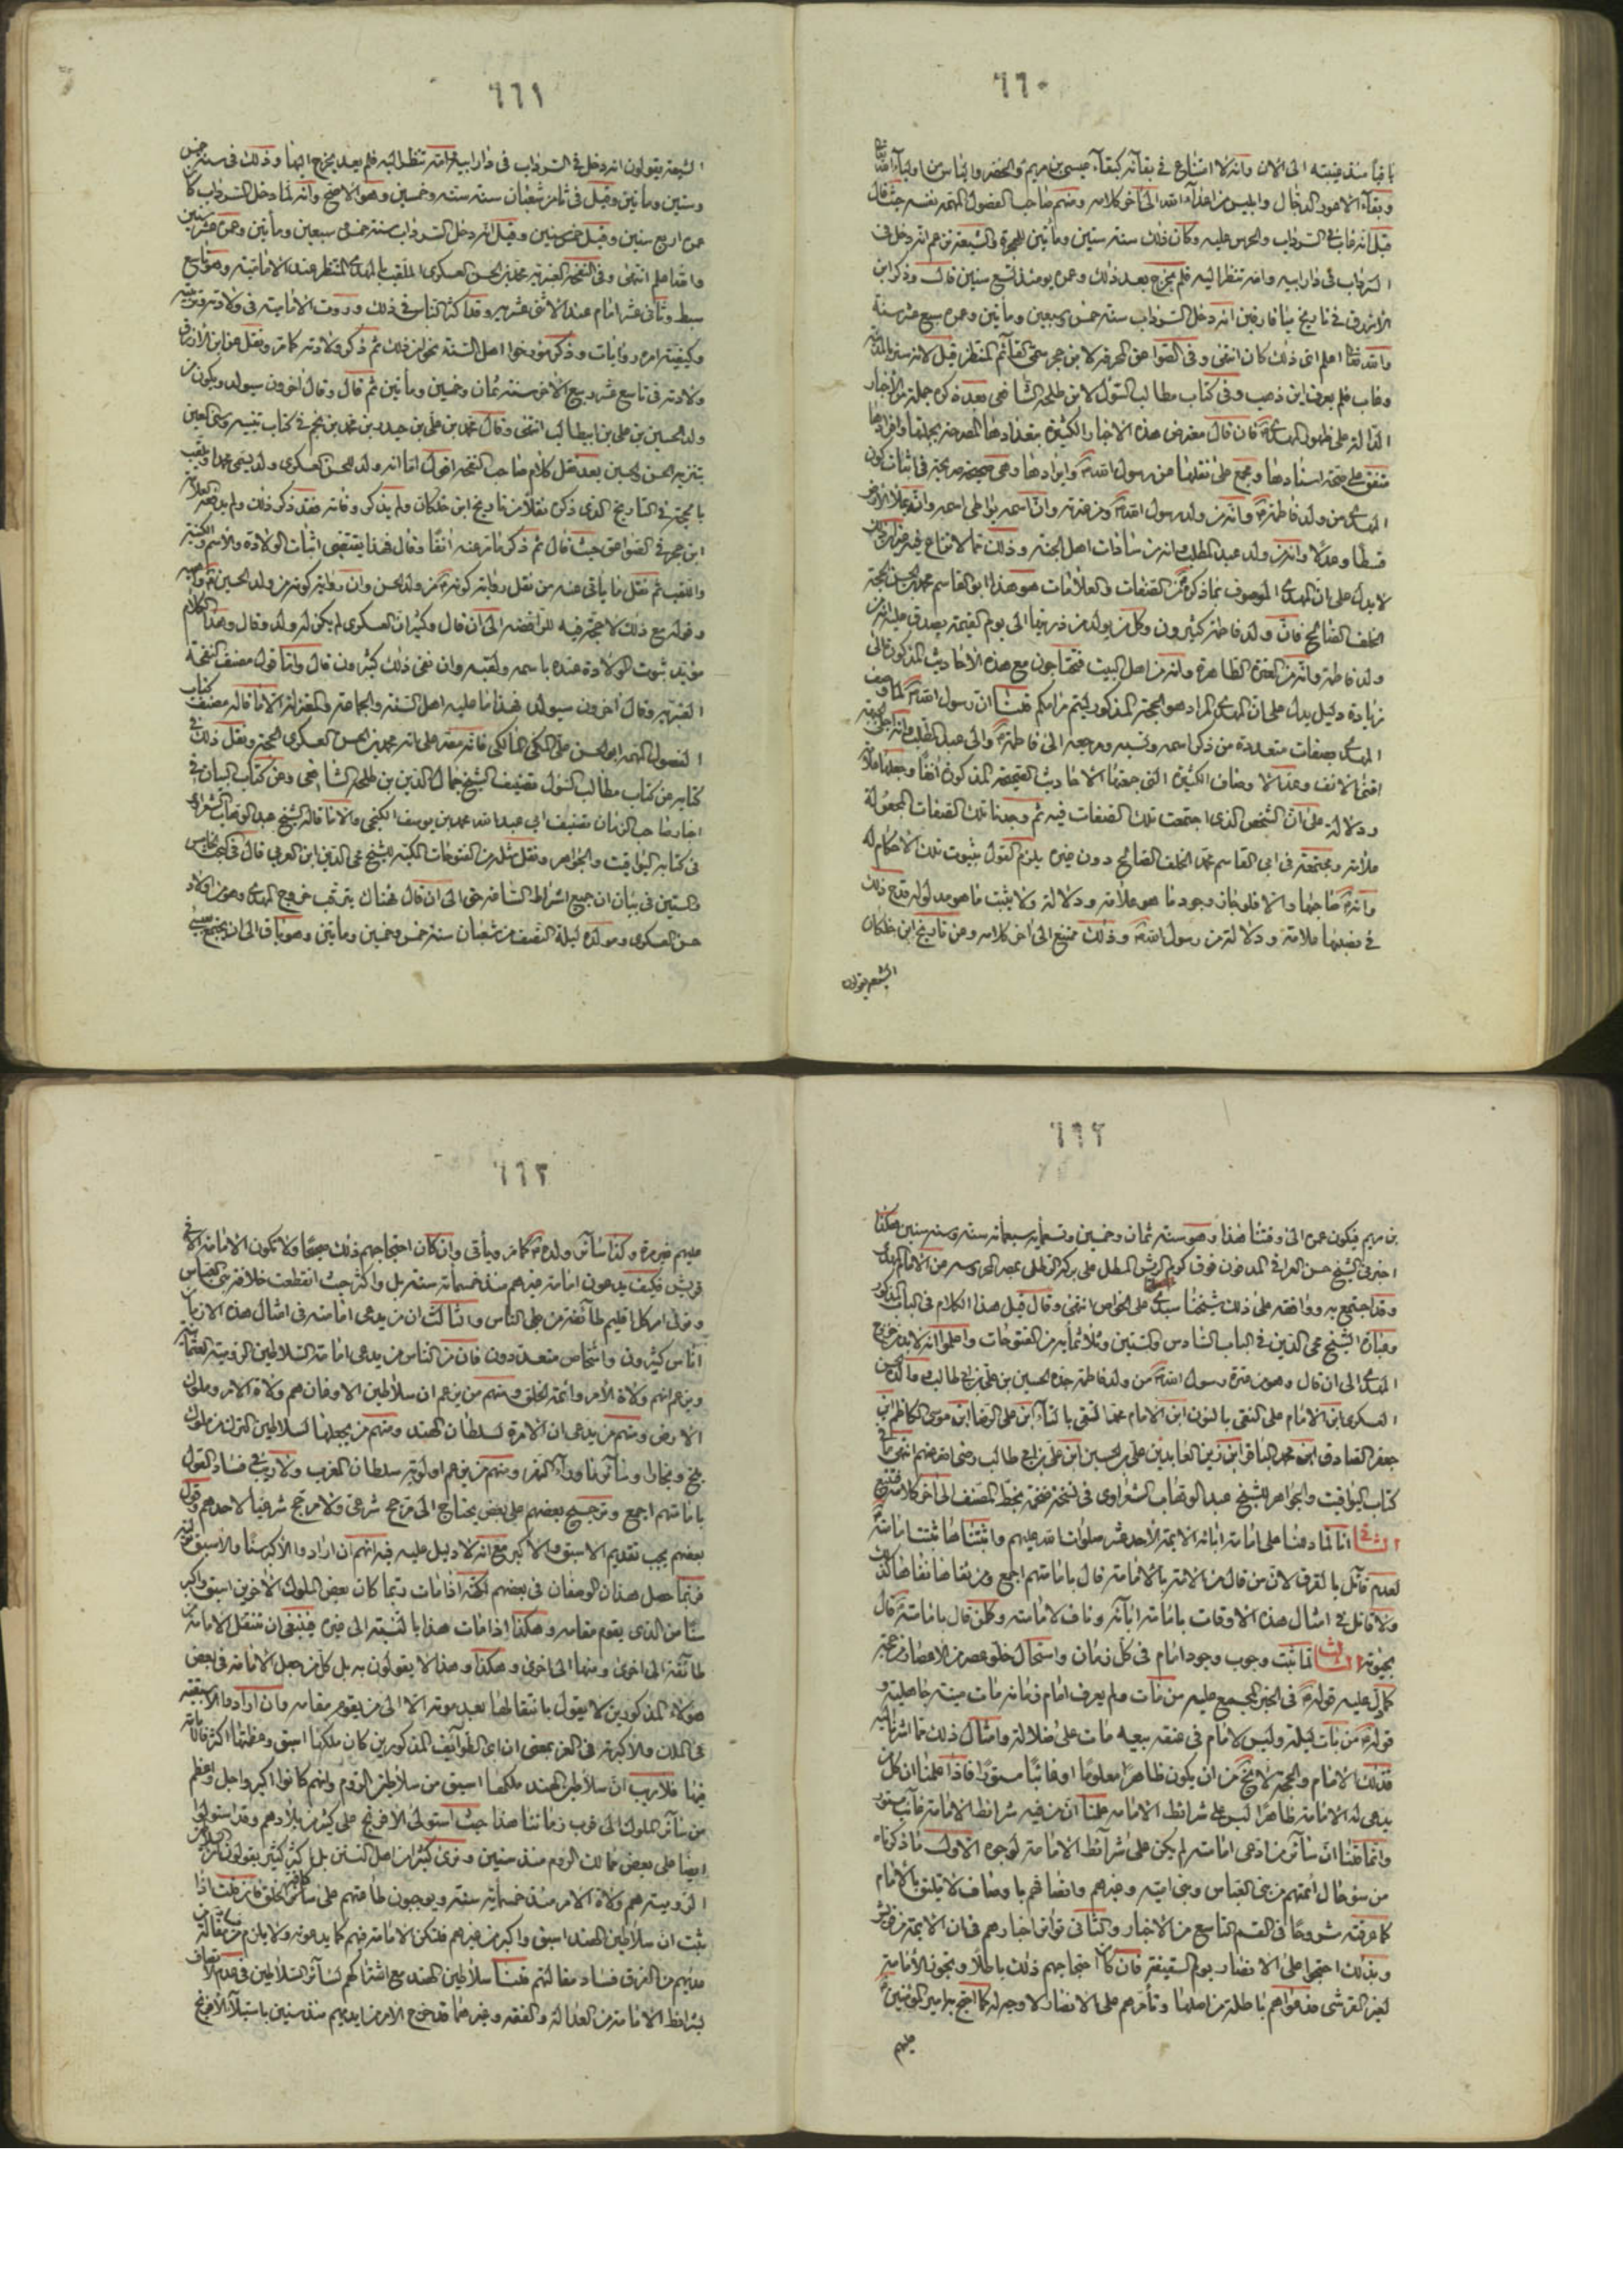 ٦٦٠
باقيا منذ غيبته الى الان وانه لا امتناع في بقآئه كبقآء عيسى بن مريم والخضر والياس من اوليآء الله
وبقآء الاعور الدجال وابليس من اعدآء الله الى آخر كلامه ومنهم صاحب الفصول المهمة نفسه حيث قال
قيل انه غاب في السرداب والحرس عليه وكان ذلك سنة ستين ومأتين للهجرة والشيعة تزعم انه دخل في
السرداب في دار ابيه وامه تنظر اليه فلم يخرج بعد ذلك وعمره يومئذ تسع سنين قال وذكر ابن
الازرق في تاريخ ميافارقين انه دخل السرداب سنة خمس وسبعين ومأتين وعمره سبع عشرة سنة
والله تعالى اعلم اي ذلك كان انتهى وفي الصواعق المحرقة لابن حجر سمي القآئم المنتظر قيل لانه ستر بالمدينة
وغاب فلم يعرف اين ذهب وفي كتاب مطالب السؤل لابن طلحة الشافعي بعد ذكره جملة من الأخبار
الدالة على ظهور المهدي فان قال معترض هذه الاخبار الكثيرة بتعدادها المصرحة بجملتها وافرادها
متفق على صحة اسنادها ومجمع على نقلها عن رسول الله وايرادها وهي صحيحة صريحة في اثبات كون
المهدي من ولد فاطمة وانه من ولد رسول الله ومن عترته وان اسمه يواطي اسمه وانه يملأ الارض
قسطا وعدلا وانه من ولد عبد المطلب وانه من سادات اهل الجنة وذلك مما لا نزاع فيه غير ان ذلك
لا يدل على ان المهدي الموصوف بما ذكره من الصفات والعلامات هو هذا ابو القاسم محمد بن الحسن الحجة
الخلف الصالح فان ولد فاطمة كثيرون وكل من يولد من ذريتها الى يوم القيمة يصدق عليه انه من
ولد فاطمة وانه من العترة الطاهرة وانه من اهل البيت فتحتاجون مع هذه الأحاديث المذكورة الى
زيادة دليل يدل على ان المهدي المراد هو الحجة المذكور ليتم مرامكم قلنا ان رسول الله لما وصف
المهدي بصفات متعددة من ذكر اسمه ونسبه ومرجعه الى فاطمة والى عبد المطلب وانه اجلى الجبهة
اقنى الانف وعد الاوصاف الكثيرة التي جمعتها الاحاديث الصحيحة المذكورة انفا وجعلها علامة
ودلالة على ان الشخص الذي اجتمعت تلك الصفات فيه ثم وجدنا تلك الصفات المجعولة
علامة ومجتمعة في ابي القاسم محمد الخلف الصالح دون غيره يلزم القول بثبوت تلك الاحكام له
وانه صاحبها والا فلو جاز وجود ما هو علامة ودلالة ولا يثبت ما هو مدلوله قدح ذلك
في نصبها علامة ودلالة من رسول الله وذلك ممتنع الى اخر كلامه وعن تاريخ ابن خلكان
الشيعة يقولون
٦٦١
الشيعة يقولون انه دخل في السرداب في دار ابيه وامه تنظر اليه فلم يعد يخرج اليها وذلك في سنة خمس
وستين ومأتين وقيل في ثامن شعبان سنة ستة وخمسين وهو الاصح وانه لما دخل السرداب كان
عمره اربع سنين وقيل خمس سنين وقيل انه دخل السرداب سنة خمس وسبعين ومأتين وعمره عشر سنين
والله اعلم انتهى وفي النفحة العنبرية محمد بن الحسن العسكري الملقب بالمهدي المنتظر عند الامامية وهو تاسع
سبط وثاني عشر امام عند الاثنى عشرية وقد اكثر الناس في ذلك وروت الامامية في ولادته وغيبته
وكيفية امره روايات وذكر مؤرخوا اهل السنة نحوا من ذلك ثم ذكر ولادته كما مر ونقل عن ابن الازرق
ولادته في تاسع عشر ربيع الاخر سنة ثمان وخمسين ومأتين ثم قال وقال اخرون سيولد ويكون من
ولد الحسين بن علي بن ابيطالب انتهى وقال محمد بن علي بن حيدر بن محمد بن نجم في كتاب تنبيه وسنى العين
بتنزيه الحسن والحسين بعد نقل كلام صاحب النفحة اقول اما انه ولد للحسن العسكري ولد يسمى محمدا ويلقب
بالحجة في التاريخ الذي ذكره نقلا من تاريخ ابن خلكان ولم يذكر وفاته فقد ذكر ذلك ولم يدفعه العلامة
ابن حجر في الصواعق حيث قال ثم ذكر ما مر عنه انفا وقال فهذا يقتضي اثبات الولادة والاسم والكنية
واللقب ثم نقل ما يأتي عنه من نقل رواية كونه من ولد الحسن وان رواية كونه من ولد الحسين واهية
وقوله مع ذلك لا حجة فيه للرافضة الى ان قال وكثير ان العسكري لم يكن له ولد وقال وهذا الكلام
مؤيد ثبوت الولادة عنده باسمه ولقبه وان نفى ذلك كثيرون قال واما قول مصنف النفحة
العنبرية وقال آخرون سيولد فهذا ما عليه اهل السنة والجماعة والمعتزلة الا ما قاله مصنف كتاب
الفصول المهمة ابو الحسن علي المكي المالكي فانه نص على انه محمد بن الحسن العسكري الحجة ونقل ذلك في
كتابه من كتاب مطالب السؤل تصنيف الشيخ جمال الدين بن طلحة الشافعي وعن كتاب البيان في
اخبار صاحب الزمان تصنيف ابي عبد الله محمد بن يوسف الكنجي والا ما قاله الشيخ عبد الوهاب الشعراوي
في كتابه اليواقيت والجواهر ونقل مثله من الفتوحات المكية للشيخ محي الدين ابن العربي قال في المبحث الخامس
والستين في بيان ان جميع اشراط الساعة حق الى ان قال فهناك يترقب خروج المهدي وهو من اولاد
حسن العسكري ومولده ليلة النصف من شعبان سنة خمس وخمسين ومأتين وهو باق الى ان يجتمع بعيسى
٦٦٢
بن مريم فيكون عمره الى وقتنا هذا وهو سنة ثمان وخمسين وتسعمأية سبعمأة سنة وستة سنين هكذا
اخبرني الشيخ حسن العراقي المدفون فوق كوم الريش المطل على بركة الرطلي بمصر المحروسة من الامام المهدي
وقد اجتمع به ووافقه على ذلك شيخنا سيدي علي الخواص انتهى وقال قبل هذا الكلام في الباب المذكور
وعبارة الشيخ محي الدين في الباب السادس والستين وثلثمأية من الفتوحات واعلموا انه لابد من خروج
المهدي الى ان قال وهو من عترة رسول الله من ولد فاطمة جده الحسين بن علي بن ابي طالب ووالده الحسن
العسكري ابن الامام علي النقي بالنون ابن الامام محمد التقي بالتآء ابن علي الرضا ابن موسى الكاظم ابن
جعفر الصادق ابن محمد الباقر ابن زين العابدين علي بن الحسين ابن علي بن ابي طالب رضي الله عنهم انتهى ما في
كتاب اليواقيت والجواهر للشيخ عبد الوهاب الشعراوي في نسخة صحت بخط المصنف الى آخر كلامه فتتبع
الثاني انا لما دللنا على امامة ابائه الائمة الأحد عشر صلوات الله عليهم واثبتناها ثبتت امامته
لعدم قائل بالفرق لان من قال من الامة بالامامة قال بامامتهم اجمع ومن نفاها نفاها كذلك
ولا قائل في امثال هذه الاوقات بامامة ابآئه وناف لامامته وكل من قال بامامته قال
بحيوته الثالث لما ثبت وجوب وجود امام في كل زمان واستحال خلو عصر من الاعصار من حجة
كما دل عليه قوله في الخبر المجمع عليه من مات ولم يعرف امام زمانه مات ميتة جاهلية و
قوله من بات ليلة وليس لامام في عنقه بيعة مات على ضلالة وامثال ذلك مما اشرنا اليه
فذلك الامام والحجة لا يخ من ان يكون ظاهرا معلوما او غائبا مستورا فاذا علمنا ان كل من
يدعى له الامامة ظاهرا ليس على شرائط الامامة علمنا ان من فيه شرائط الامامة غائب مستور
وانما قلنا ان سآئر من ادعى امامته لم يكن على شرآئط الامامة لوجوه الاول ما ذكرناه
من سوء حال ائمتهم من بني العباس وبني امية وغيرهم واتصافهم باوصاف لا تليق بالامام
كما عرفته مشروحا في القسم التاسع من الاخبار والثاني تواتر اخبارهم في ان الائمة من قريش
وبذلك احتجوا على الانصار يوم السقيفة فان كان احتجاجهم ذلك باطلا وتجوز الأمامة
لغير القرشي فدعواهم باطلة من اصلها وتأمرهم على الانصار لا وجه له كما احتج به امير المؤمنين
عليهم
٦٦٣
عليهم غير مرة وكذا سآئر ولده كما مر ويأتي وان كان احتجاجهم ذلك صحيحا ولا تكون الامامة الا في
قريش فكيف يدعون امامة غيرهم منذ خمسمأة سنة بل واكثر حيث انقطعت خلافة بني العباس
وتولى امر كل اقليم طآئفة من على الناس والثالث ان من يدعى امامته في امثال هذه الازمان
اناس كثيرون واشخاص متعددون فان من الناس من يدعي امامة السلاطين الرومية العثمانية
ويزعم انهم ولاة الأمر وائمة الخلق ومنهم من يزعم ان سلاطين الاوغان هم ولاة الامر وملوك
الارض ومنهم من يدعي ان الامرة لسلطان الهند ومنهم من يجعلها لسلاطين الترك من ملوك
بلخ وبخارا وسآئر ما ورآء النهر ومنهم من يزعم اولوية سلطان المغرب ولا ريب في فساد القول
بامامتهم اجمع وترجيح بعضهم على بعض يحتاج الى مرجح شرعي ولا مرجح شرعيا لاحدهم وقول
بعضهم يجب تقديم الاسبق والاكبر مع انه لا دليل عليه فيه انهم ان ارادوا الأكبر سنا والأسبق
فربما حصل هذان الوصفان في بعضهم لكنه اذا مات ربما كان بعض الملوك الآخرين اسبق واكبر
سنا من الذي يقوم مقامه وهكذا اذا مات هذا بالنسبة الى غيره فينبغي ان تنتقل الامامة من
طآئفة الى اخرى ومنها الى اخرى وهكذا وهذا لا يقولون به بل كل من جعل الامامة في بعض
هؤلاء المذكورين لا يقول بانتقالها بعد موته الا الى من يقوم مقامه وان ارادوا الأسبقية
في الملك والأكبرية في العز بمعنى ان اي الطوآئف المذكورين كان ملكها اسبق وعظمتها اكثر فالامامة
فيها فلا ريب ان سلاطين الهند ملكها اسبق من سلاطين الروم وانهم كانوا اكبر واجل واعظم
من سآئر الملوك الى قرب زماننا هذا حيث استولى الافرنج على كثير من بلادهم وقد استولوا
ايضا على بعض ممالك الروم منذ سنين وترى كثيرا من اهل السنن بل اكثر كثير يقولون
الرومية هم ولاة الأمر منذ خمسمأية سنة ويوجبون طاعتهم على سآئر الخلق كافة فان قلت اذا
ثبت ان سلاطين الهند اسبق واكبر من غيرهم فلتكن الامامة فيهم كما يدعونه ولا يلزم من بطلان مقالة
عديهم من الفرق فساد مقالتهم قلنا سلاطين الهند مع اشتراكهم لسآئر السلاطين في عدم الاتصاف
بشرائط الامامة من العدالة والفقه وغيرهما قد خرج الامر من ايديهم منذ سنين باستيلآء الافرنج